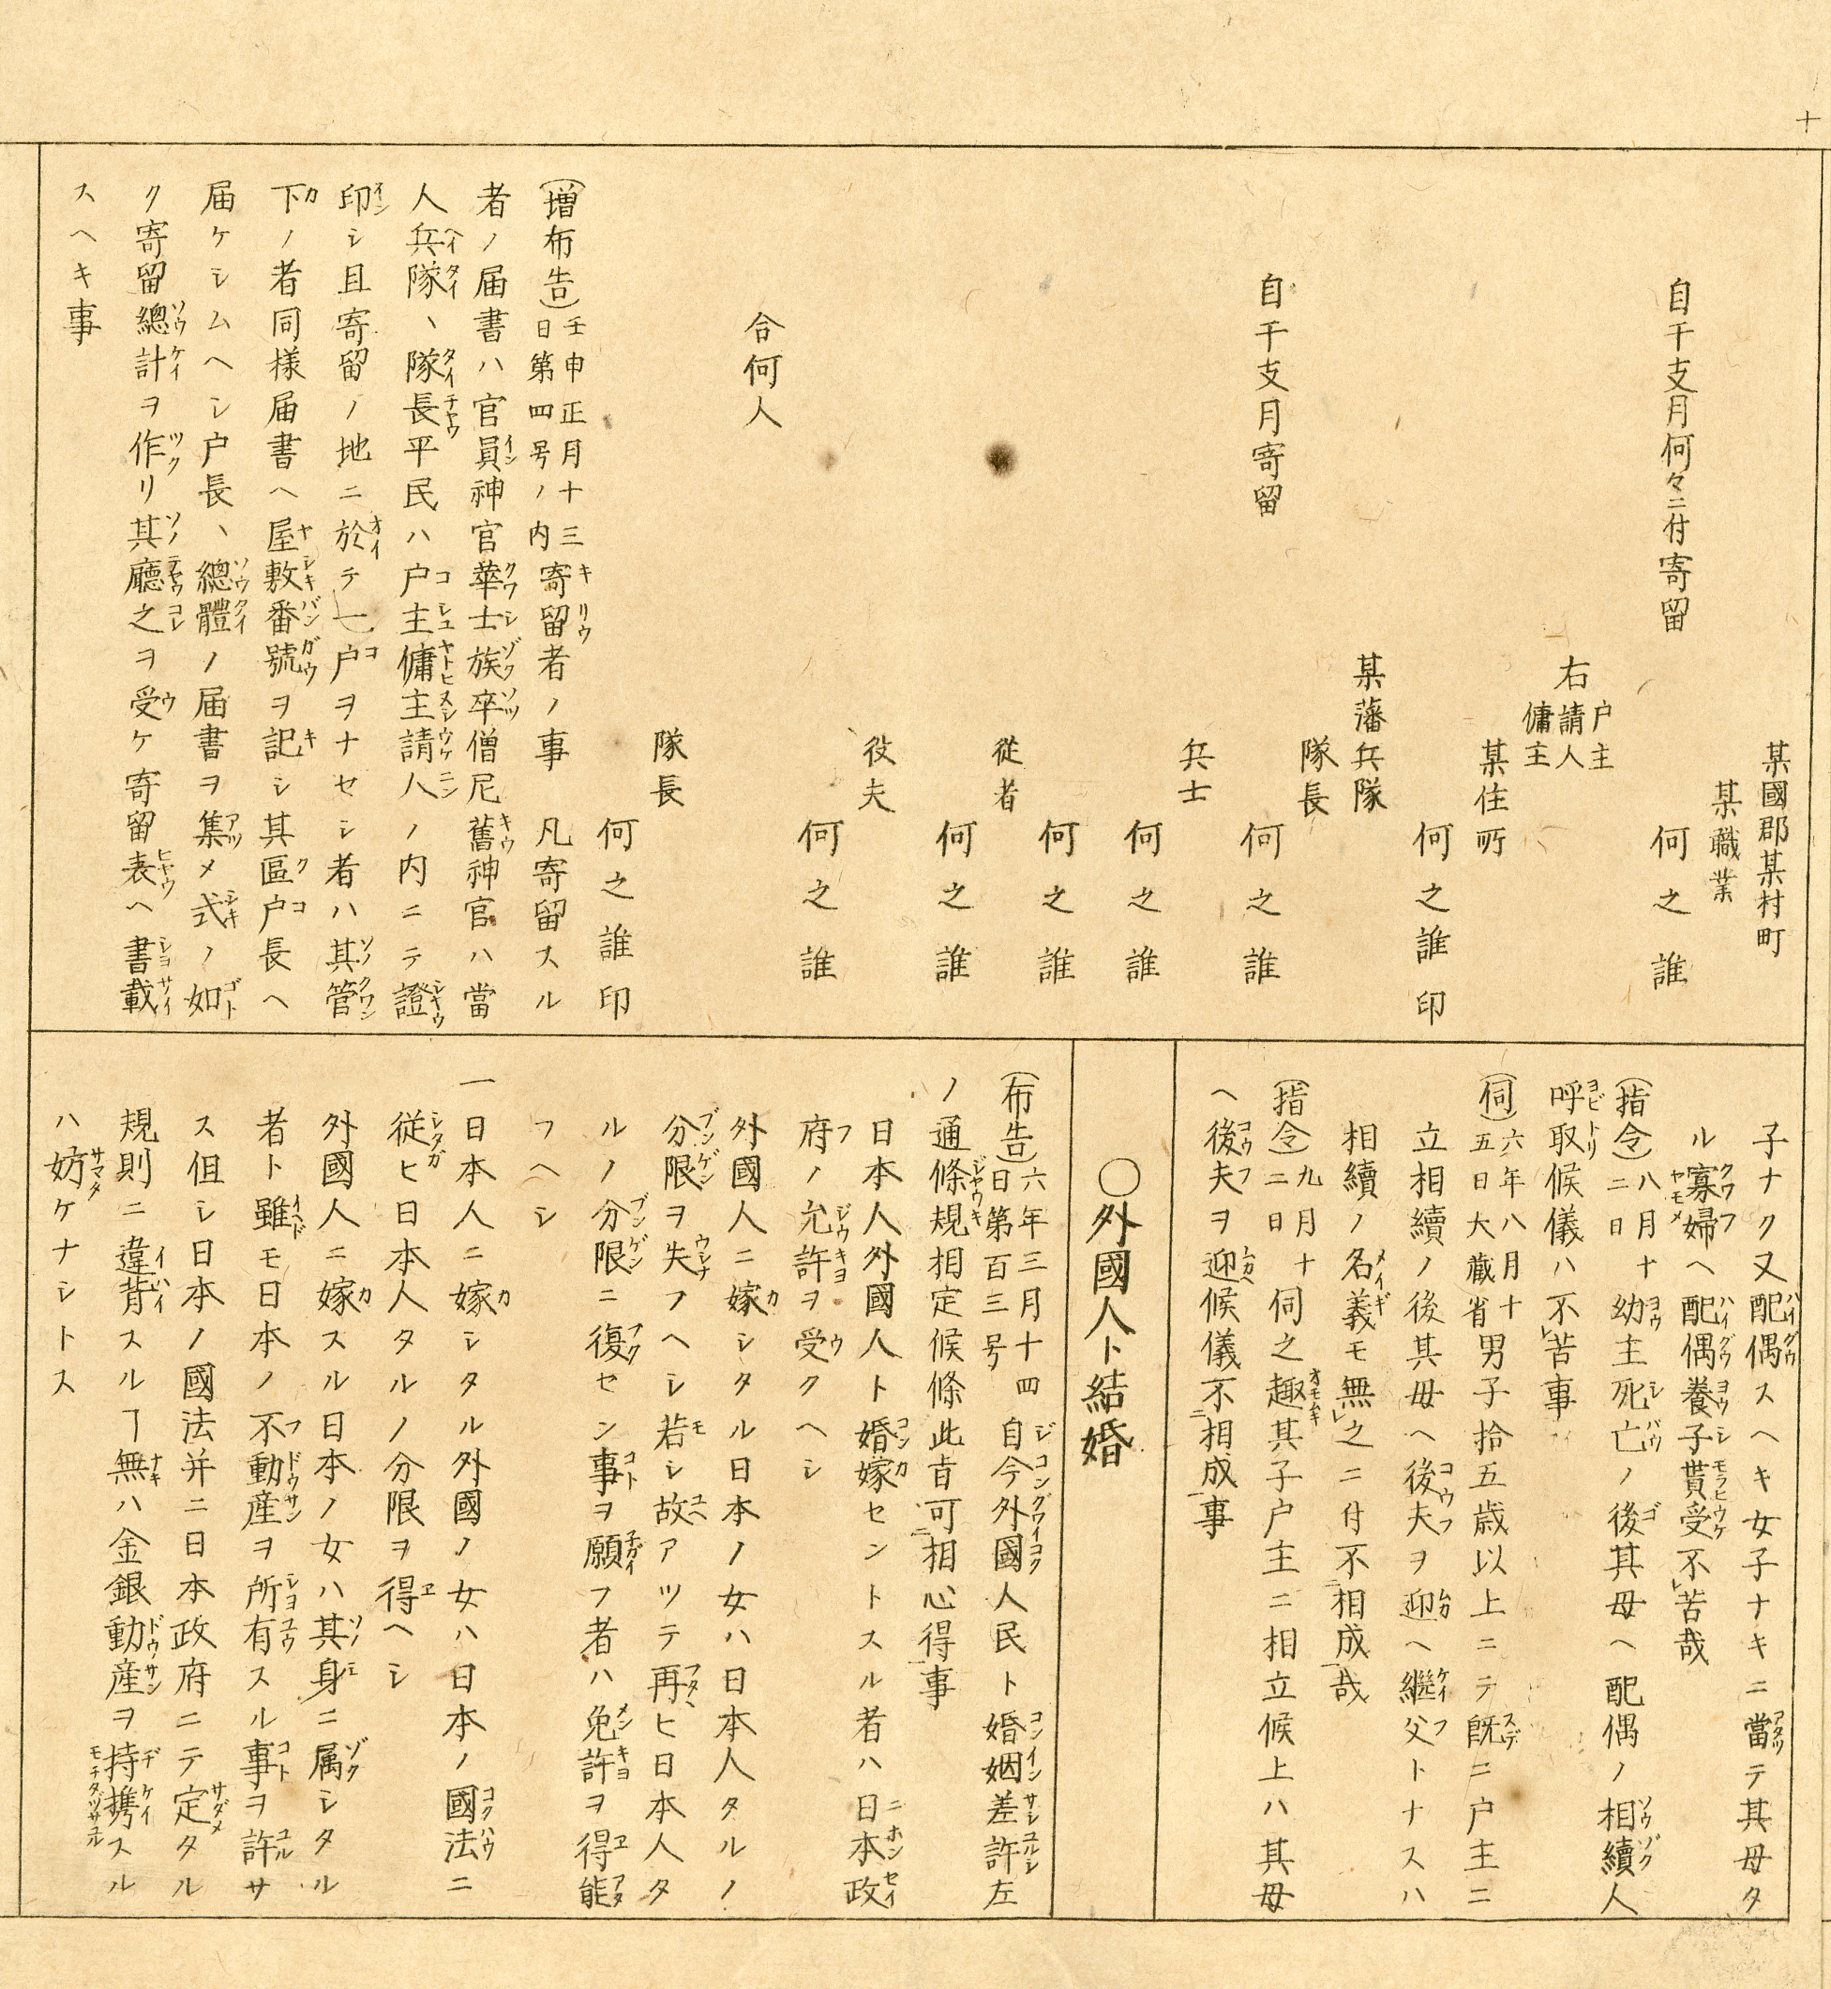 某國郡某村町
某職業
何之誰
自干支月何々ニ付寄留
戸主
右請人
傭主
某住所
何之誰印
某藩兵隊
隊長
何之誰
自干支月寄留
兵士
何之誰
何之誰
從者
何之誰
役夫
何之誰
合何人
隊長
何之誰印
(増布告)壬申正月十三日第四号ノ内寄留者ノ事 凡寄留スル
者ノ届書ハ官員神官華士族卒僧尼舊神官ハ當
人兵隊ヽ隊長平民ハ户主傭主請人ノ内ニテ證
印シ且寄留ノ地ニ於テ一户ヲナセシ者ハ其管
下ノ者同様届書ヘ屋敷番號ヲ記シ其區户長ヘ
届ケシムヘシ户長ヽ總體ノ届書ヲ集メ式ノ如
ク寄留總計ヲ作リ其廳之ヲ受ケ寄留表ヘ書載
スヘキ事
子ナク又配偶スヘキ女子ナキニ當テ其母タ
ル寡婦ヘ配偶養子貰受不レ苦哉
(指令)八月十二日幼主死亡ノ後其母ヘ配偶ノ相續人
呼取候儀ハ不レ苦事
(伺)六年八月十五日大藏省男子拾五歳以上ニテ既ニ户主ニ
立相續ノ後其母ヘ後夫ヲ迎ヘ繼父トナスハ
相續ノ名義モ無レ之ニ付不ニ相成一哉
(指令)九月十二日伺之趣其子户主ニ相立候上ハ其母
ヘ後夫ヲ迎候儀不ニ相成一事
○外國人ト結婚
(布告)六年三月十四日第百三号自今外國人民ト婚姻差許左
ノ通條規相定候條此旨可ニ相心得一事
日本人外國人ト婚嫁セントスル者ハ日本政
府ノ允許ヲ受クヘシ
外國人ニ嫁シタル日本ノ女ハ日本人タルノ
分限ヲ失フヘシ若シ故アツテ再ヒ日本人タ
ルノ分限ニ復セン事ヲ願フ者ハ免許ヲ得能
フヘシ
一日本人ニ嫁シタル外國ノ女ハ日本ノ國法ニ
從ヒ日本人タルノ分限ヲ得ヘシ
外國人ニ嫁スル日本ノ女ハ其身ニ属シタル
者ト雖モ日本ノ不動産ヲ所有スル事ヲ許サ
ス但シ日本ノ國法并ニ日本政府ニテ定タル
規則ニ違背スルヿ無ハ金銀動産ヲ持携スル
ハ妨ケナシトス